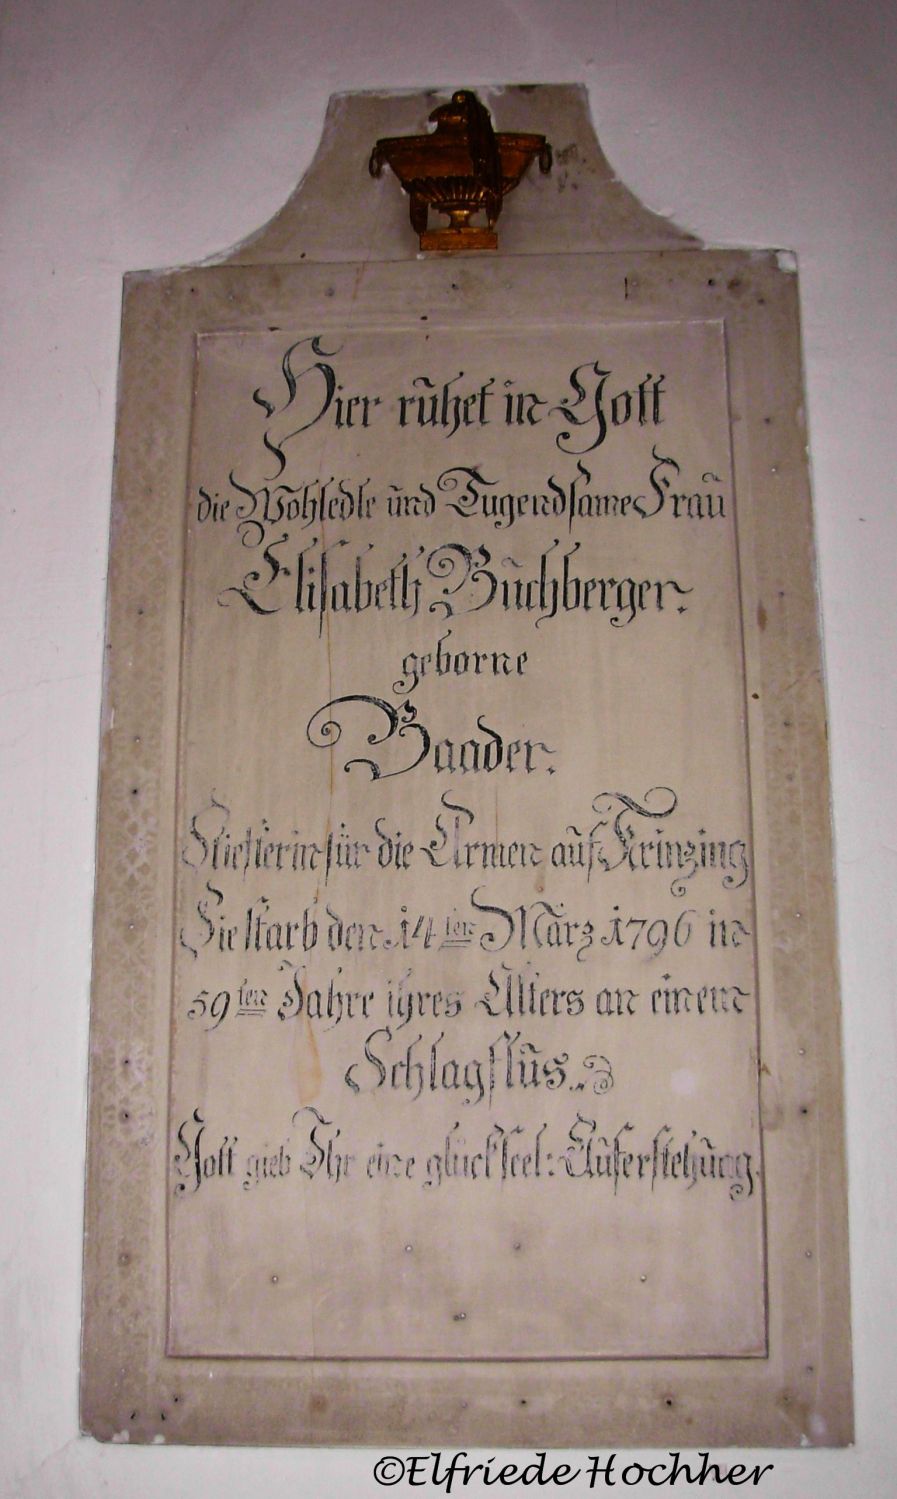 Hier ruhet in Gott
die Wohledle und Tugendsame Frau
Elisabeth Buchberger.
geborne
Baader.
Stiefterin für die Armen auf Krinzing
Sie starb den 14ten März 1796 in
59ten Jahre ihres Alters an einem
Schlagflus.
Gott gieb Ihr eine glückseel: Auferstehung.
©Elfriede Hochher